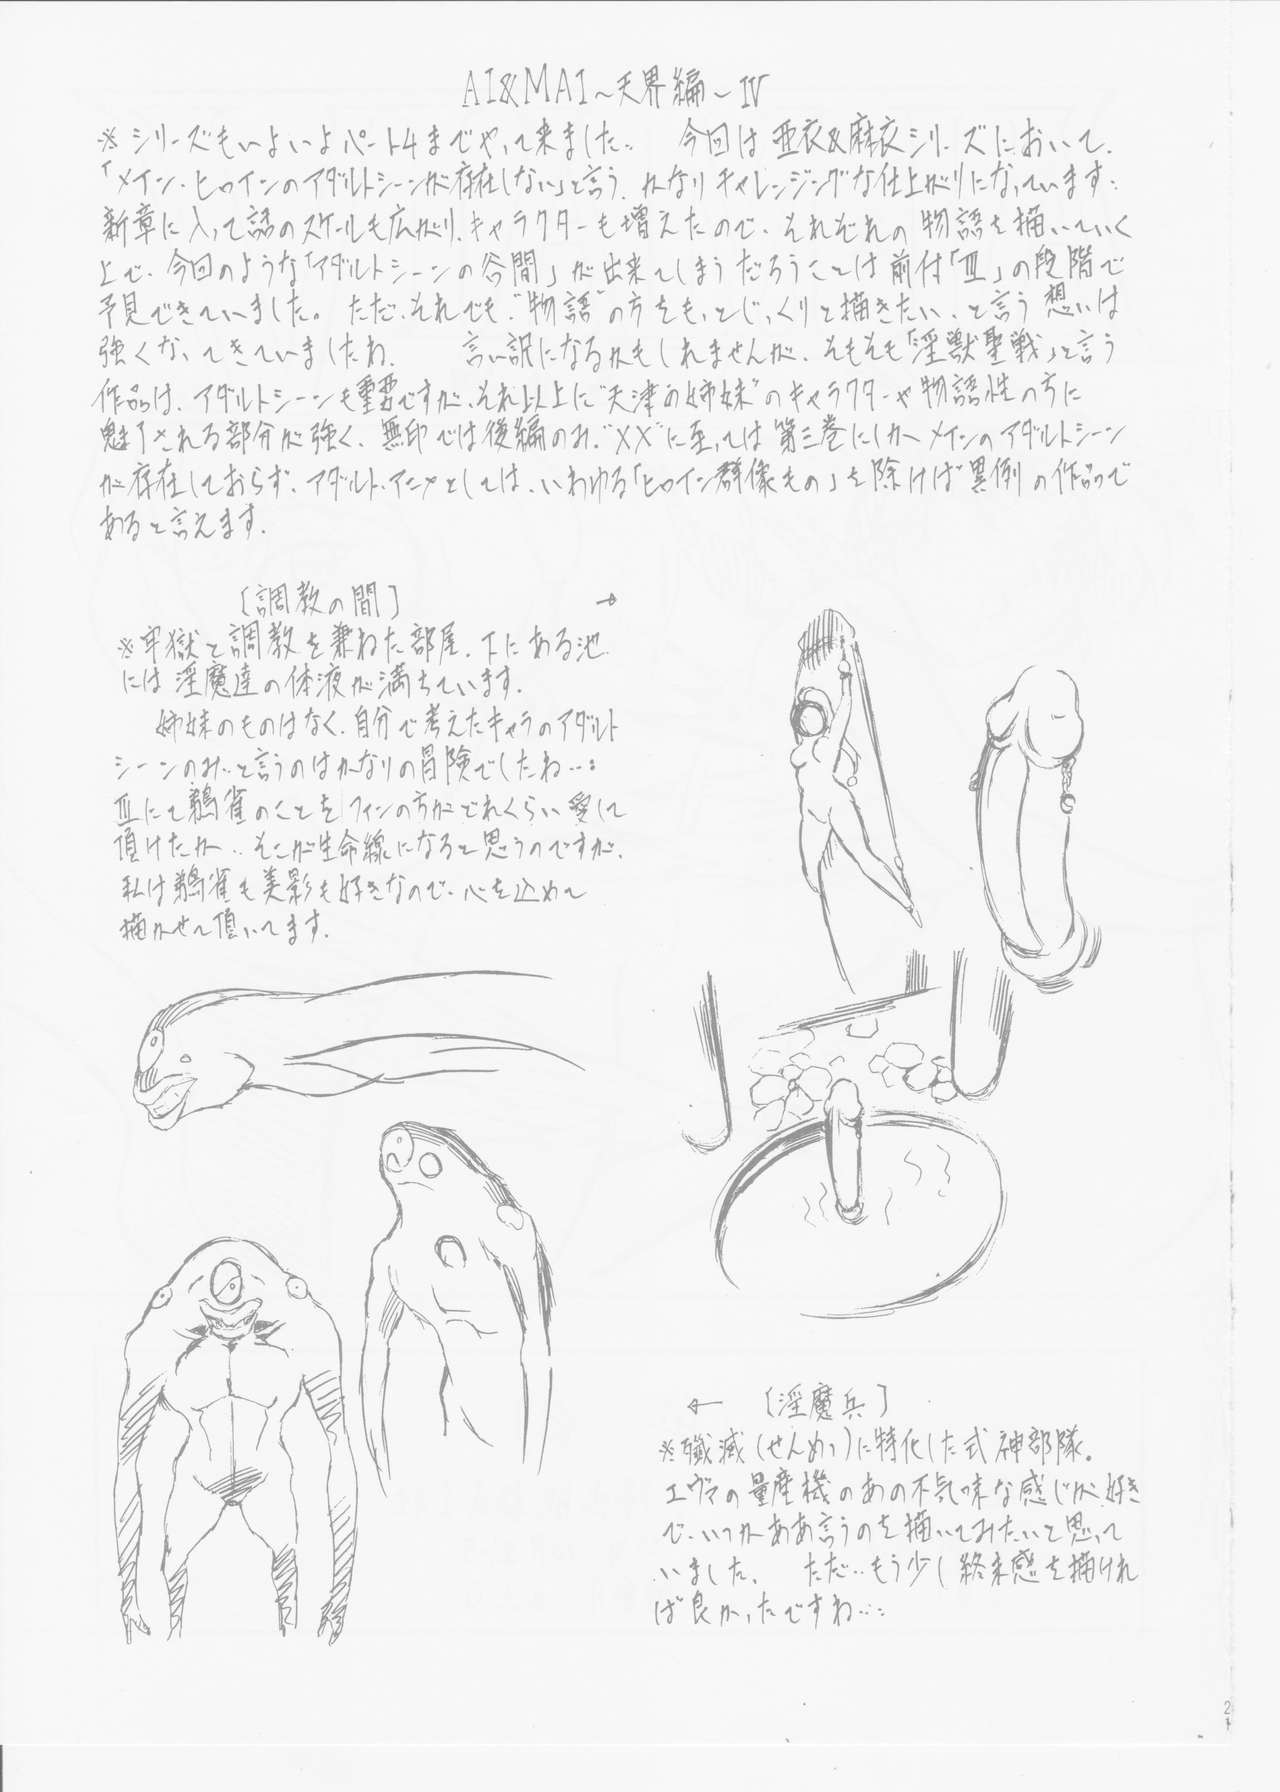 AI&MAI～天界編～Ⅳ
※シリーズもいよいよパート4までやって来ました… 今回は亜衣&麻衣シリーズにおいて、
「メイン・ヒロインのアダルトシーンが存在しない」と言う、かなりチャレンジングな仕上がりになっています…
新章に入って話のスケールも広がり、キャラクターも増えたので、それぞれの物語を描いていく
上で、今回のような「アダルトシーンの谷間」が出来てしまうだろうことは前付「Ⅲ」の段階で
予見できていました。 ただ、それでも“物語”の方をもっとじっくりと描きたい、と言う想いは
強くなってきていましたね。 言い訳になるかもしれませんが、そもそも「淫獣聖戦」と言う
作品は、アダルトシーンも重要ですが、それ以上に“天津の姉妹”のキャラクターや物語性の方に
魅了される部分が強く、無印では後編のみ、“XX”に至っては第三巻にしかメインのアダルトシーン
が存在しておらず、アダルト・アニメとしては、いわゆる「ヒロイン群像もの」を除けば異例の作品で
あると言えます。
〔調教の間〕 →
※牢獄と調教を兼ねた部屋、下にある池
には淫魔達の体液が満ちています。
姉妹のものはなく、自分で考えたキャラのアダルト
シーンのみ…と言うのはかなりの冒険でしたね…
Ⅲにて鵺雀のことをファンの方がどれくらい愛して
頂けたか…そこが生命線になると思うのですが、
私は鵺雀も美影も好きなので、心を込めて
描かせて頂いてます。
← 〔淫魔兵〕
※殲滅(せんめつ)に特化した式神部隊。
エヴァの量産機のあの不気味な感じが好き
で、いつかああ言うのを描いてみたいと思って
いました。 ただ…もう少し終末感を描けれ
ば良かったですね…
2